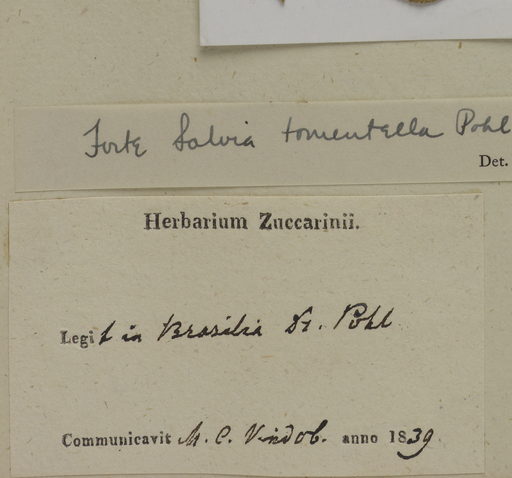 Forte Salvia tomentella Pohl
Det.
Herbarium Zuccarinii.
Legit in Brasilia Dr. Pohl
Communicavit M. C. Vindob. anno 1839